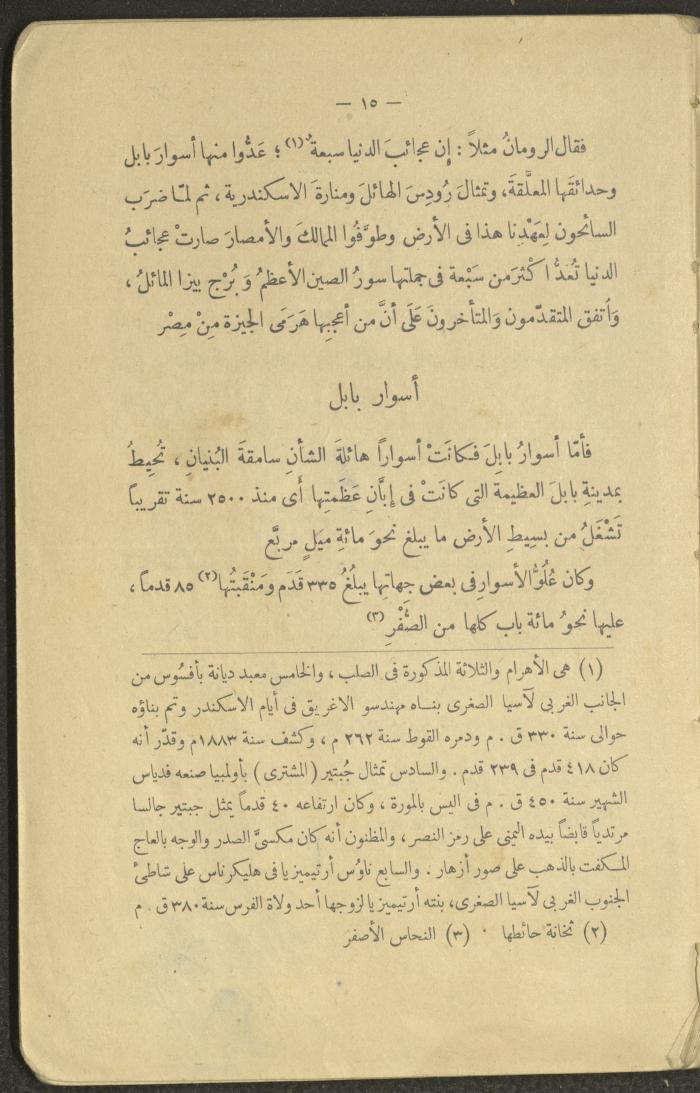 — ١٥ —
فقال الرومانُ مثلاً : إن عجائبَ الدنيا سبعة ٌ(١) ؛ عَدُّوا منها أسوارَ بابل
وحدائقَها المعلَّقةَ، وتمثالَ رُودِسَ الهائلَ ومنارةَ الاسكندرية ، ثم لمّا ضرَب
السائحون لِعَهْدِنا هذا فى الأرض وطوَّفُوا الممالكَ والأمصارَ صارتْ عجائبُ
الدنيا تُعَدُّ اكْثرَ من سَبْعة فى جملتها سورُ الصين الأعظمُ وَ بُرْج بيزا المائلُ ،
وَاُتفق المتقدّمون وَالمتأخرونَ عَلَى أنَّ من أعجبِها هَرَمَى الجيزة مِنْ مِصْر
أسوار بابل
فأمّا أسوارُ بابِلَ فـكانَتْ أسواراً هائلةَ الشأنِ سامقةَ البُنيانِ ، تُحِيطُ
بمدينةِ بابلَ العظيمة التى كانَتْ فى إبَّانِ عَظَمتِها أَى منذ ٢٥٠٠ سنة تقريباً
تَشْغَلُ من بسِيطِ الأرض ما يبلغ نحوَ مائةِ ميَلٍ مربَّع
وكان عُلُوُّ الأسوارِ فى بعض جِهاتِها يبلُغُ ٣٣٥ قَدَم ومَنْقَبتُها(٢) ٨٥ قدماً ،
عليها نحوُ مائة باب كلها من الصُّفْرِ (٣)
(١) هى الأهرام والثلاثة المذكورة فى الصلب ، والخامس معبد ديانة بأفسُوس من
الجانب الغربى لآسيا الصغرى بنـاه مهندسو الاغريق فى أيام الاسكندر وتم بناؤه
حوالى سنة ٣٣٠ ق . م ودمره القوط سنة ٢٦٢ م ، وكشف سنة ١٨٨٣م وقدّر أنه
كان ٤١٨ قدم فى ٢٣٩ قدم . والسادس تمثال جُبتير (المشترى ) بأولمبيا صنعه فدياس
الشهير سنة ٤٥٠ ق . م فى اليس بالمورة ، وكان ارتفاعه ٤٠ قدماً يمثل جبتير جالسا
مرتدياً قابضاً بيده اليمنى على رمز النصر ، والمظنون أنه كان مكسىَّ الصدر والوجه بالعاج
المـكفت بالذهب على صور أزهار . والسابع ناوُس أرتيميزيا فى هليكرناس على شاطئ
الجنوب الغربى لآسيا الصغرى، بنته أرتيميزيا لزوجها أحد ولاة الفرس سنة ٣٨٠ ق . م
(٢) ثخانة حائطها · (٣) النحاس الأصفر